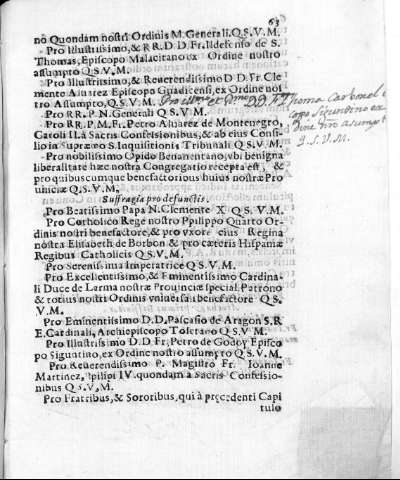 63
nó Quondam nostri Ordinis M. Generali. Q. S. V. M.
Pro Illustrissimo, & RR. D. D. Fr. Ildefonso de S.
Thomas, Episcopo Malacitano ex Ordine nostro
assumpto Q. S. V. M.
Pro Illustrissimo, & Reuerendissimo D. D. Fr. Cle
mente Aluarez Episcopo Guadicensi, ex Ordine nos
tro Assumpto, Q. S. V. M.
Pro RR. P. N. Generali Q S. V. M.
Pro RR. P. M. Fr. Petro Aluarez de Montenegro,
Caroli II. à Sacris Confessionibus, & ab eius Consi-
lio in Supræmo S. Inquisitionis Tribunali Q S. V. M.
Pro nobilissimo Opido Benauentano, vbi benigna
liberalitate hæc nostra Congregatio recepta est, &
pro quibuscumque benefactoribus huius nostræ Pro
uinciæ Q. S. V. M.
Suffragia pro defunctis.
Pro Beatissimo Papa N. Clemente X Q. S. V. M.
Pro Cotholico Rege nostro Philippo Quarto Or-
dinis nostri benefactore, & pro vxore eius Regina
nostra Elisabeth de Borbon & pro cæteris Hispaniæ
Regibus Catholicis Q. S. V. M.
Pro Serenissima Imperatrice Q S. V. M.
Pro Excellentissimo, & Eminentissimo Cardina-
li Duce de Lerma nostræ Prouinciæ speciali Patrono
& totius nostri Ordinis vniuersali benefactore Q S.
V. M.
Pro Eminentissimo D. D. Pascasio de Aragon S. R
E. Cardinali, Archiepiscopo Toletano Q S. V. M.
Pro Illustrissimo D. D. Fr. Petro de Godoy Episco
po Siguntino, ex Ordine nostro assumpto Q. S. V. M.
Pro Reuerendissimo P. Magistro Fr. Ioanne
Martinez, Philipi IV. quondam à Sacris Confessio-
nibus Q S. V. M.
Pro Fratribus, & Sororibus, qui à precedenti Capi
tulo
Pro Illmo et Rmo D. D. F. Thoma Carbonel
copo Siguntino ex
dine nro asumpt
Q. S. V. M.